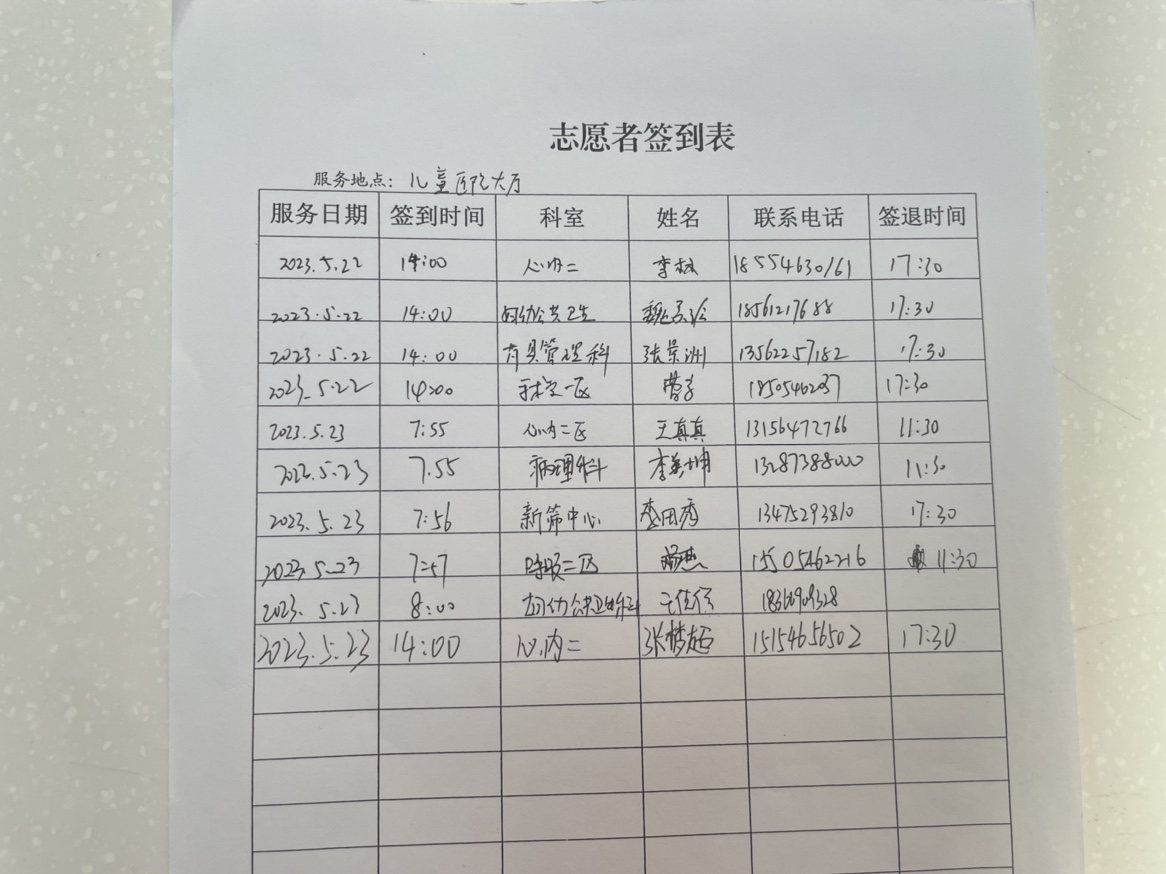 志愿者签到表
服务地点：儿童医院大厅
服务日期 签到时间 科室 姓名 联系电话 签退时间
2023.5.22 14:00 心内二 李 18554630161 17:30
2023.5.22 14:00 妇幼公共卫生 魏 18561217688 17:30
2023.5.22 14:00 育县管理科 张景洲 13562257182 17:30
2023.5.22 14:00 手术室一区 曹 18505462037 17:30
2023.5.23 7:55 心内二区 王真真 13156472766 11:30
2023.5.23 7.55 病理科 李 坤 13287388000 11:30
2023.5.23 7:56 新筛中心 李田秀 13475293810 17:30
2023.5.23 7:57 呼吸二区 杨 15505462216 11:30
2023.5.23 8:00 妇幼公共卫生科 王佳佳
2023.5.23 14:00 心内二 张梦超 15154656502 17:30